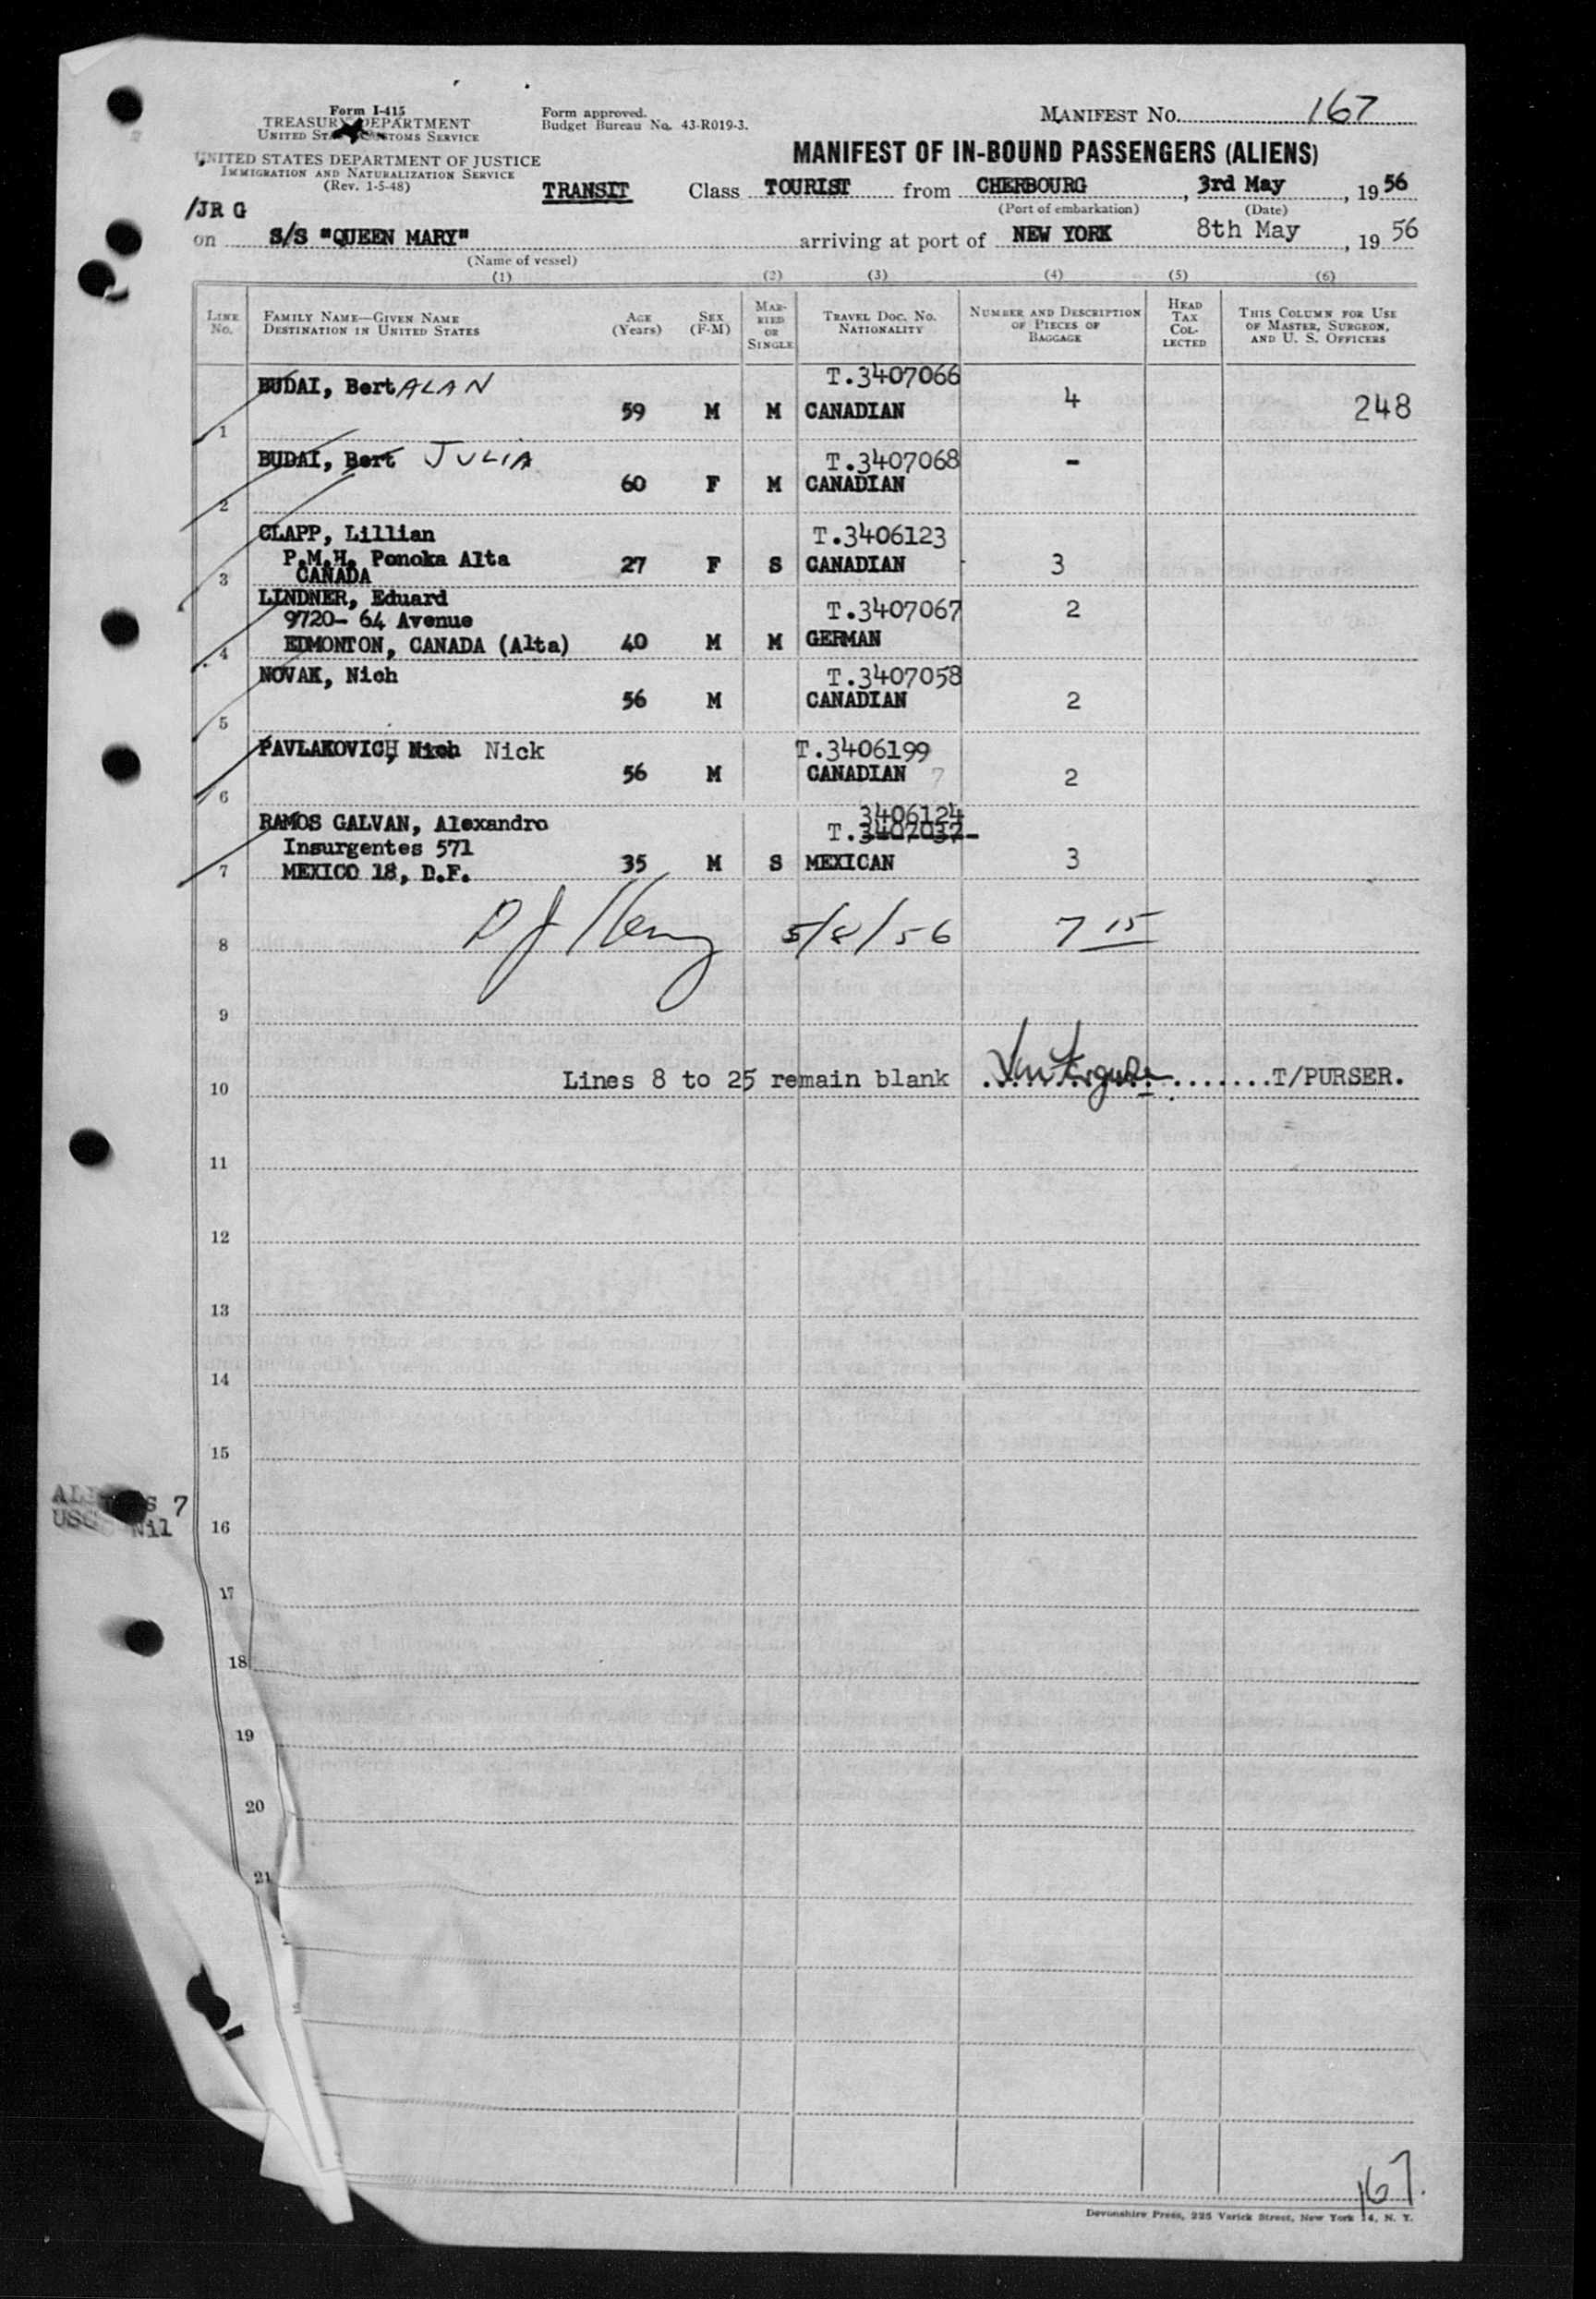 Form I-415
TREASURY DEPARTMENT
UNITED STATES CUSTOMS SERVICE
UNITED STATES DEPARTMENT OF JUSTICE
IMMIGRATION AND NATURALIZATION SERVICE
(Rev. 1-5-48)
Form approved.
Budget Bureau No. 43-R019-3.
MANIFEST NO. 167
MANIFEST OF IN-BOUND PASSENGERS (ALIENS)
/JR G
TRANSIT Class TOURIST from CHERBOURG, 3rd May, 1956
(Port of embarkation) (Date)
on S/S "QUEEN MARY" arriving at port of NEW YORK 8th May, 1956
(Name of vessel)
(1) (2) (3) (4) (5) (6)
LINE No. FAMILY NAME—GIVEN NAME DESTINATION IN UNITED STATES AGE (Years) SEX (F-M) MARRIED OR SINGLE TRAVEL DOC. NO. NATIONALITY NUMBER AND DESCRIPTION OF PIECES OF BAGGAGE HEAD TAX COLLECTED THIS COLUMN FOR USE OF MASTER, SURGEON, AND U. S. OFFICERS
BUDAI, Bert ALAN T.3407066
1 59 M M CANADIAN 4 248
BUDAI, Bert JULIA T.3407068 -
2 60 F M CANADIAN
CLAPP, Lillian T.3406123
P.M.H. Ponoka Alta
3 CANADA 27 F S CANADIAN 3
LINDNER, Eduard T.3407067 2
9720- 64 Avenue
4 EDMONTON, CANADA (Alta) 40 M M GERMAN
NOVAK, Nich T.3407058
5 56 M CANADIAN 2
PAVLAKOVICH, Nich Nick T.3406199
6 56 M CANADIAN 7 2
RAMOS GALVAN, Alexandro 3406124
Insurgentes 571 T.3407037-
7 MEXICO 18, D.F. 35 M S MEXICAN 3
8 5/8/56 7 15
9
10 Lines 8 to 25 remain blank ..........T/PURSER.
11
12
13
14
15
ALIENS 7
USC Nil
16
17
18
19
20
21
167.
Devonshire Press, 225 Varick Street, New York 14, N. Y.